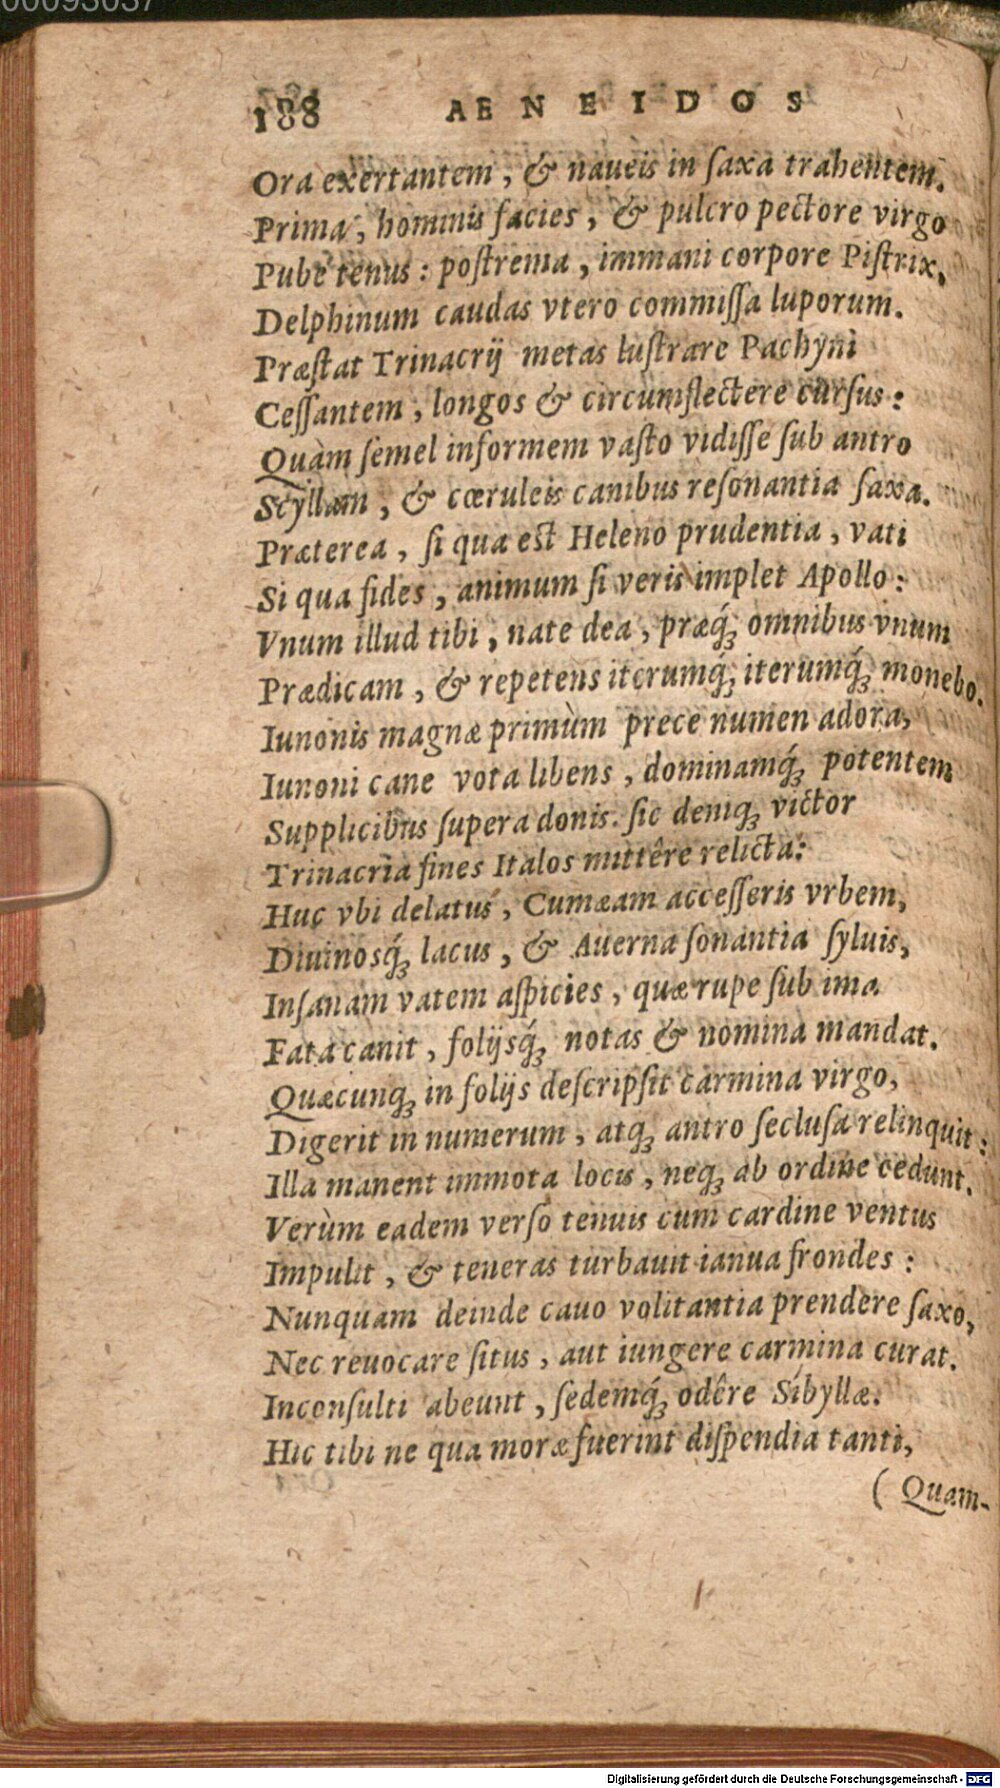 00093037
188 AENEIDOS
Ora exertantem, & naueis in ſaxa trahentem.
Prima, hominis facies, & pulcro pectore virgo
Pube tenus: poſtrema, immani corpore Piſtrix,
Delphinum caudas vtero commiſſa luporum.
Præſtat Trinacrij metas luſtrare Pachyni
Ceſſantem, longos & circumflectere curſus:
Quàm ſemel informem vaſto vidiſſe ſub antro
Scyllam, & cœruleis canibus reſonantia ſaxa.
Præterea, ſi qua eſt Heleno prudentia, vati
Si qua fides, animum ſi veris implet Apollo:
Vnum illud tibi, nate dea, præq́ꝫ omnibus vnum
Prædicam, & repetens iterumq́ꝫ iterumq́ꝫ monebo.
Iunonis magnæ primùm prece numen adora,
Iunoni cane vota libens, dominamq́ꝫ potentem
Supplicibus ſupera donis. ſic deniqꝫ victor
Trinacria fines Italos mittêre relicta:
Huc vbi delatus, Cumæam acceſſeris vrbem,
Diuinosq́ꝫ lacus, & Auerna ſonantia ſyluis,
Inſanam vatem aſpicies, quæ rupe ſub ima
Fata canit, folijsq́ꝫ notas & nomina mandat.
Quæcunqꝫ in folijs deſcripſit carmina virgo,
Digerit in numerum, atqꝫ antro ſecluſa relinquit:
Illa manent immota locis, neqꝫ ab ordine cedunt.
Verùm eadem verſo tenuis cum cardine ventus
Impulit, & teneras turbauit ianua frondes:
Nunquam deinde cauo volitantia prendere ſaxo,
Nec reuocare ſitus, aut iungere carmina curat.
Inconſulti abeunt, ſedemq́ꝫ odêre Sibyllæ.
Hic tibi ne qua moræ fuerint diſpendia tanti,
(Quam-
Digitalisierung gefördert durch die Deutsche Forschungsgemeinschaft - DFG